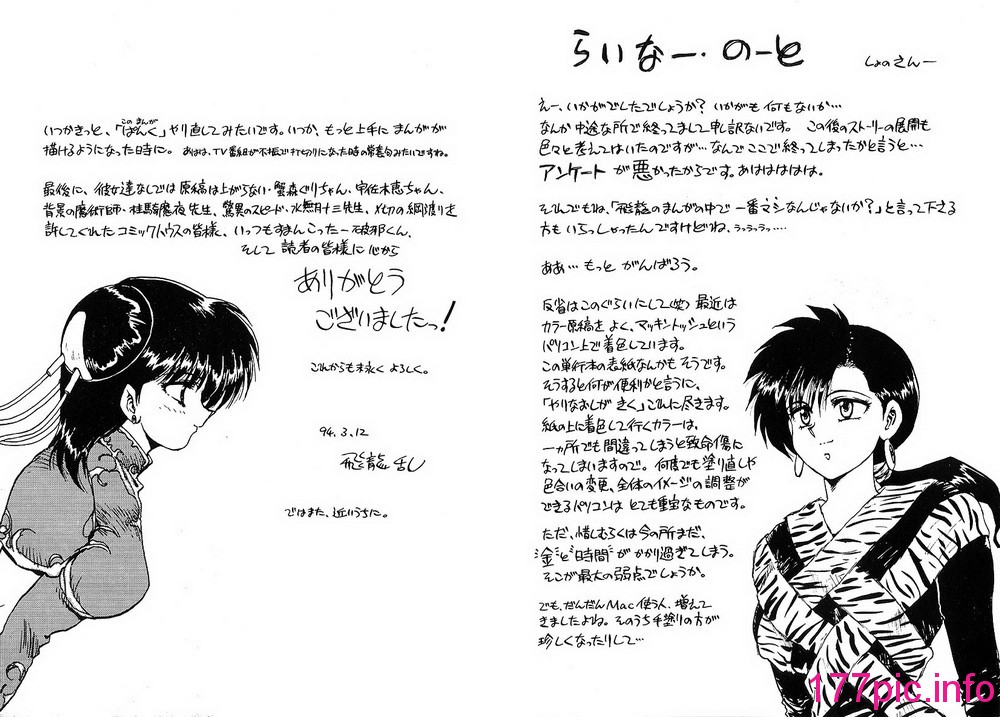 らいなー・のーと
しょのさんー
えー、いかがでしたでしょうか？ いかがも何もないか…
なんか中途な所で終ってまして申し訳ないです。 この後のストーリーの展開も
色々と考えてはいたのですが…なんでここで終ってしまったかと言うと…
アンケートが悪かったからです。あはははははは。
それでもね、「飛龍のまんがの中で一番マシなんじゃないか？」と言って下さる
方もいらっしゃったんですけどね、うっうっうっ…。
ああ…もっとがんばろう。
反省はこのぐらいにして(笑) 最近は
カラー原稿をよく、マッキントッシュという
パソコン上で着色しています。
この単行本の表紙なんかもそうです。
そうすると何が便利かと言うに、
「やりなおしがきく」これに尽きます。
紙の上に着色して行くカラーは、
一ヵ所でも間違ってしまうと致命傷に
なってしまいますので。何度でも塗り直しや
色合いの変更、全体のイメージの調整が
できるパソコンはとても重宝なものです。
ただ、惜しむらくは今の所まだ、
"金"と"時間"がかかり過ぎてしまう。
そこが最大の弱点でしょうか。
でも、だんだんMac使う人、増えて
きましたよね。そのうち手塗りの方が
珍しくなったりして…
いつかきっと、「ぱんく」やり直してみたいです。いつか、もっと上手にまんがが
このまんが
描けるようになった時に。あはは、TV番組が不振で打切りになった時の常套句みたいですね。
最後に、彼女達なしでは原稿は上がらない・蟹森ぐりちゃん、宇佐木恵ちゃん、
背景の魔術師・桂騎魔夜先生、驚異のスピード・水無月十三先生、〆切の綱渡りを
許してくれたコミックハウスの皆様、いっつもすまんこったー破邪くん、
そして読者の皆様に心から
ありがとう
ございましたっ！
これからも末永くよろしく。
94.3.12
飛龍乱
ではまた、近いうちに。
177pic.info